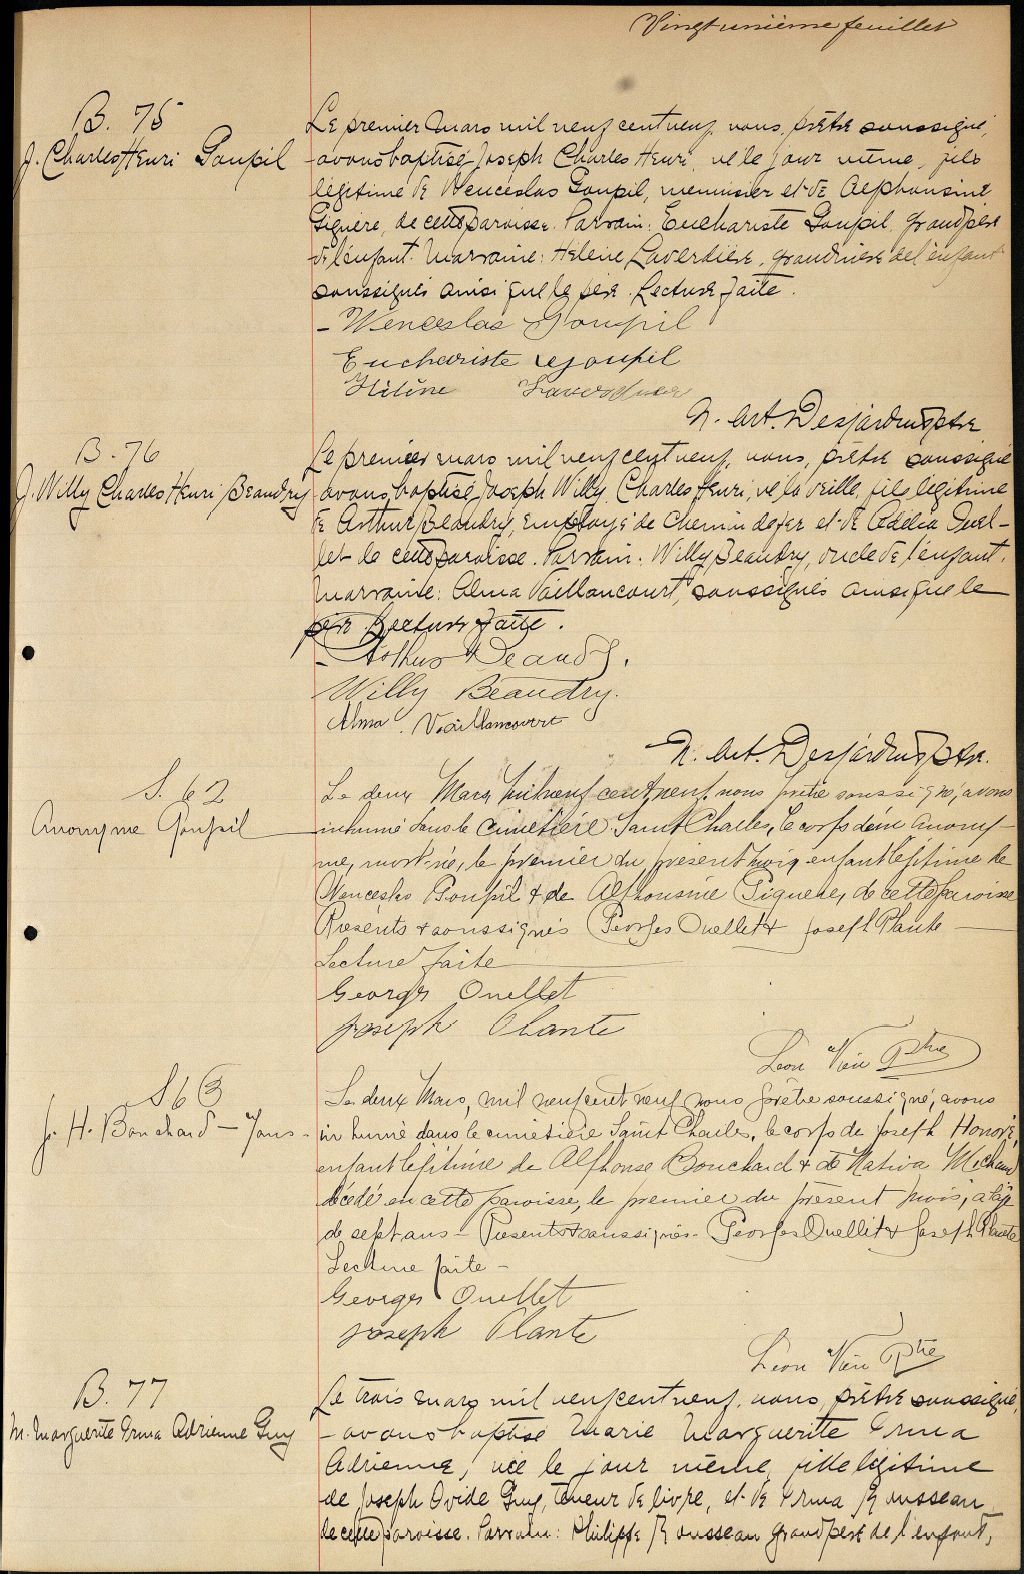 Vingt unième feuillet
B. 75
J. Charles Henri Goupil
Le premier mars mil neuf cent neuf, nous, prêtre soussigné,
avons baptisé Joseph Charles Henri, né le jour même, fils
légitime de Wenceslas Goupil, menuisier et de Alphonsine
Giguère, de cette paroisse. Parrain: Euchariste Goupil, grand père
de l'enfant. Marraine: Hélène Laverdière, grand'mère de l'enfant
soussignés ainsi que le père. Lecture faite.
- Wenceslas Goupil
Euchariste Goupil
Hélène
N. Art. Desjardins ptre
B. 76
J. Willy Charles Henri Beaudry
Le premier mars mil neuf cent neuf, nous, prêtre soussigné
avons baptisé Joseph Willy Charles Henri, né la veille, fils légitime
de Arthur Beaudry, employé de chemin de fer et de Adélia Ouel-
let de cette paroisse. Parrain: Willy Beaudry, oncle de l'enfant.
Marraine: Alma Vaillancourt, soussignés ainsi que le
père. Lecture faite.
- Arthur Beaudry.
Willy Beaudry.
Alma Vaillancourt
N. Art. Desjardins ptre.
S. 62
Anonyme Goupil
Le deux Mars, mil neuf cent neuf, nous prêtre soussigné, avons
inhumé dans le cimetière Saint Charles, le corps d'un anony-
me, mort-né, le premier du présent mois, enfant légitime de
Wenceslas Goupil & de Alphonsine Giguère, de cette paroisse
Présents & soussignés Georges Ouellet & Joseph Plante
Lecture faite
Georges Ouellet
Joseph Plante
Léon Vien Ptre
S 63
J. H. Bouchard - 7 ans -
Le deux Mars, mil neuf cent neuf, nous prêtre soussigné, avons
inhumé dans le cimetière Saint Charles, le corps de Joseph Honoré,
enfant légitime de Alphonse Bouchard & de Nativa Michaud
décédé en cette paroisse, le premier du présent mois, à l'âge
de sept ans - Présents & soussignés - Georges Ouellet & Joseph Plante
Lecture faite -
Georges Ouellet
Joseph Plante
Léon Vien Ptre
B. 77
M. Marguerite Irma Adrienne Guy
Le trois mars mil neuf cent neuf, nous, prêtre soussigné,
- avons baptisé Marie Marguerite Irma
Adrienne, née le jour même, fille légitime
de Joseph Ovide Guy, teneur de livre, et de Irma Rousseau
de cette paroisse. Parrain: Philippe Rousseau grand père de l'enfant,